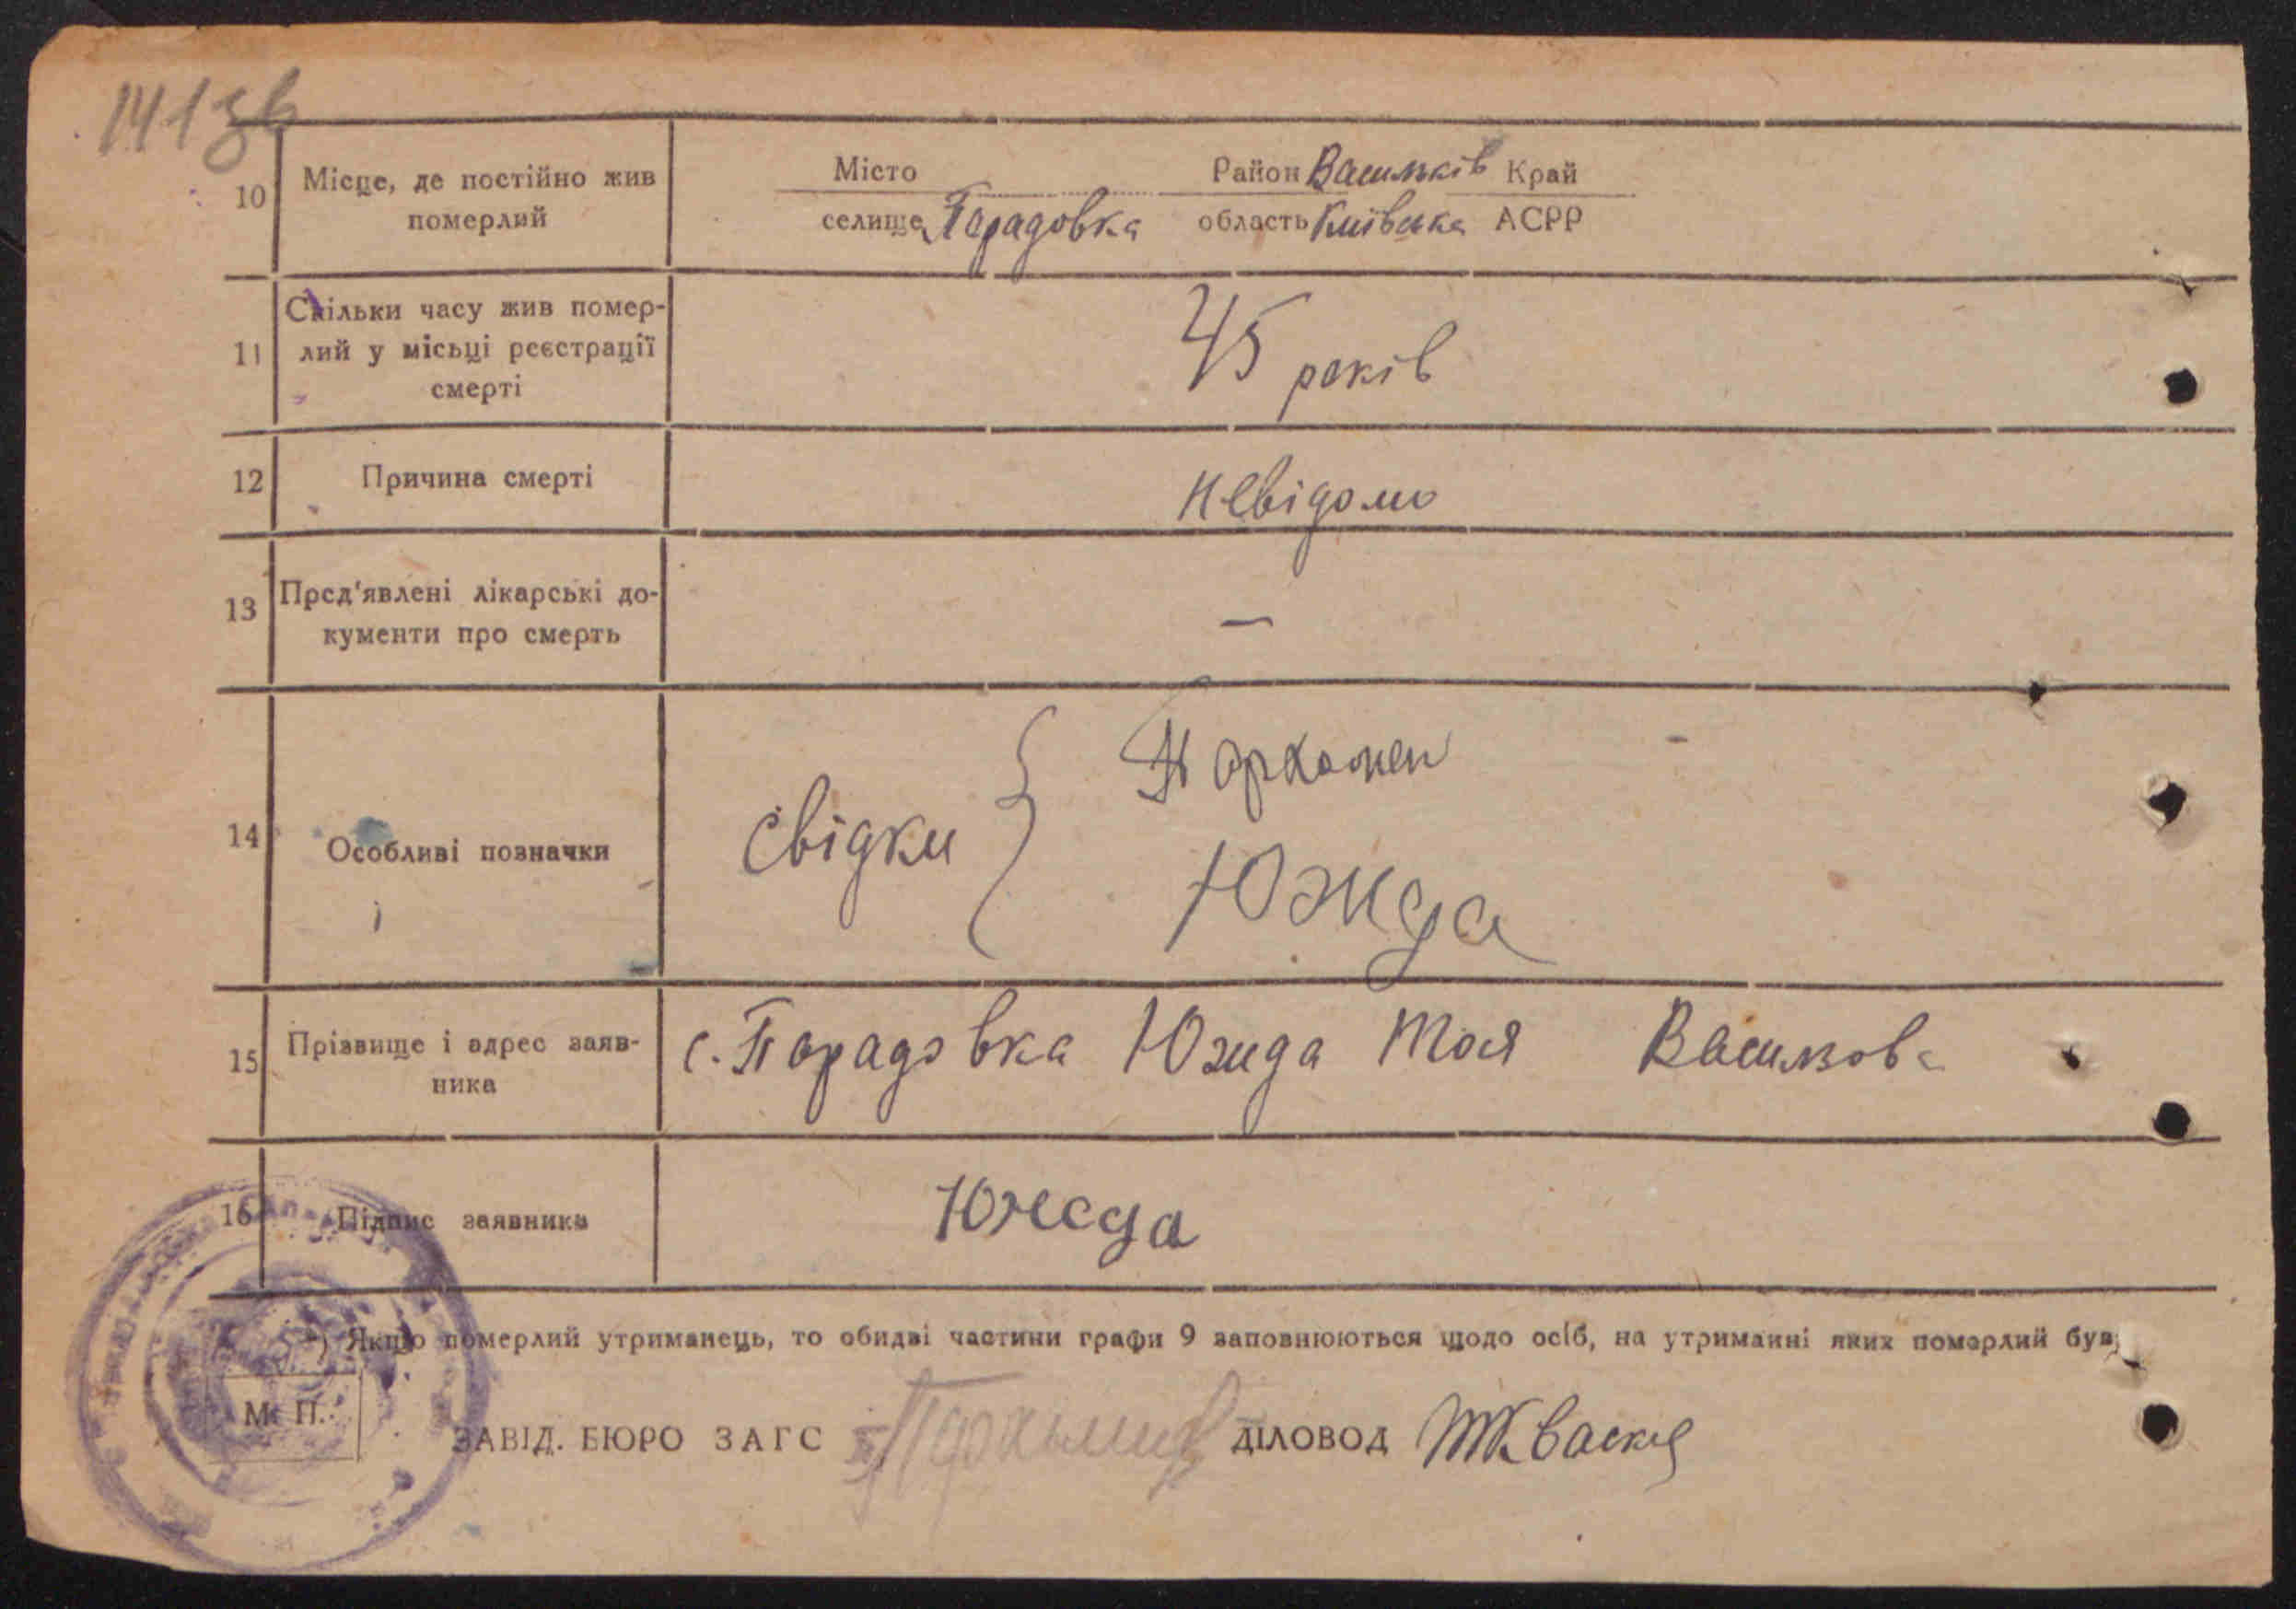 141 зв
10 Місце, де постійно жив померлий
Місто Район Васильків Край
селище Парадовка область Київська АСРР
11 Скільки часу жив помер-
лий у місьці реєстрації
смерті
45 років
12 Причина смерті невідомо
13 Пред'явлені лікарські до-
кументи про смерть
—
14 Особливі позначки
свідки { Пархомен
Южда
15 Прізвище і адрес заяв-
ника
с. Парадовка Южда Тоя Васильов
16 Підпис заявника Южда
*) Якщо померлий утриманець, то обидві частини графи 9 заповнюються щодо осіб, на утриманні яких померлий був,
М. П.
ЗАВІД. БЮРО ЗАГС ДІЛОВОД